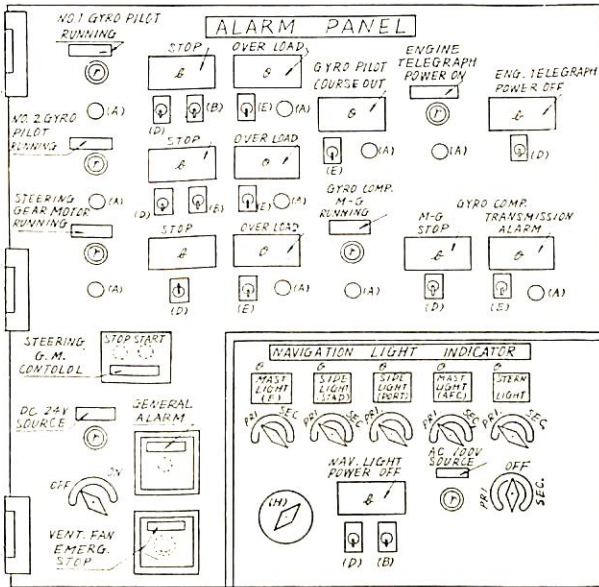 ALARM PANEL
NO.1 GYRO PILOT
RUNNING
STOP
OVER LOAD
GYRO PILOT
COURSE OUT
ENGINE
TELEGRAPH
POWER ON
ENG. TELEGRAPH
POWER OFF
(A)
(D)
(B)
(E)
(A)
(E)
(A)
(A)
(D)
NO. 2 GYRO
PILOT
RUNNING
STOP
OVER LOAD
(A)
(D)
(B)
(E)
(A)
STEERING
GEAR MOTOR
RUNNING
STOP
OVER LOAD
GYRO COMP.
M-G
RUNNING
GYRO COMP.
M-G
STOP
TRANSMISSION
ALARM
(A)
(D)
(E)
(A)
(A)
(D)
(E)
(A)
STEERING
G.M.
CONTOLOL
STOP START
DC 24V
SOURCE
GENERAL
ALARM
OFF
ON
VENT. FAN
EMERG.
STOP
NAVIGATION LIGHT INDICATOR
MAST
LIGHT
SIDE
LIGHT
SIDE
LIGHT
(PORT)
MAST
LIGHT
STERN
LIGHT
PRI. SEC
PRI. SEC
PRI. SEC
PRI. SEC
PRI. SEC
(H)
NAV. LIGHT
POWER OFF
(D)
(B)
AC 100V
SOURCE
OFF
PRI
SEC.